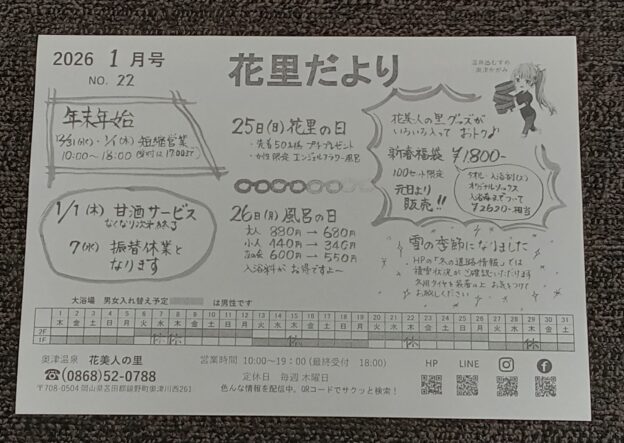 2026 1月号
NO. 22
花里だより
温泉むすめ
奥津かがみ
年末年始
12/31(水)・1/1(木) 短縮営業
10:00～18:00 (受付は17:00まで)
1/1(木) 甘酒サービス
なくなり次第終了
7(水) 振替休業と
なります
25日(日) 花里の日
・先着50名様 プチプレゼント
・女性限定 エンジェルフラワー風呂
26日(月) 風呂の日
大人 880円→680円
小人 440円→340円
600円→550円
入浴料が お得ですよ～
花美人の里グッズが
いろいろ入って おトクよ♪
新春福袋 ¥1800-
100セット限定
元日より
販売!!
タオル・入浴剤
オリジナルソックス
入浴券までついて
¥2620-相当
雪の季節になりました
HPの「冬の道路情報」では
積雪状況がご確認いただけます
冬用タイヤを装着の上 お気をつけて
お越しください
大浴場 男女入れ替え予定 は男性です
1 2 3 4 5 6 7 8 9 10 11 12 13 14 15 16 17 18 19 20 21 22 23 24 25 26 27 28 29 30 31
木 金 土 日 月 火 水 木 金 土 日 月 火 水 木 金 土 日 月 火 水 木 金 土 日 月 火 水 木 金 土
2F 休 休 休 休 休
1F
奥津温泉 花美人の里
☎(0868)52-0788
〒708-0504 岡山県苫田郡鏡野町奥津川西261
営業時間 10:00～19:00 (最終受付 18:00)
定休日 毎週 木曜日
色んな情報を配信中。QRコードでサクッと検索！
HP LINE